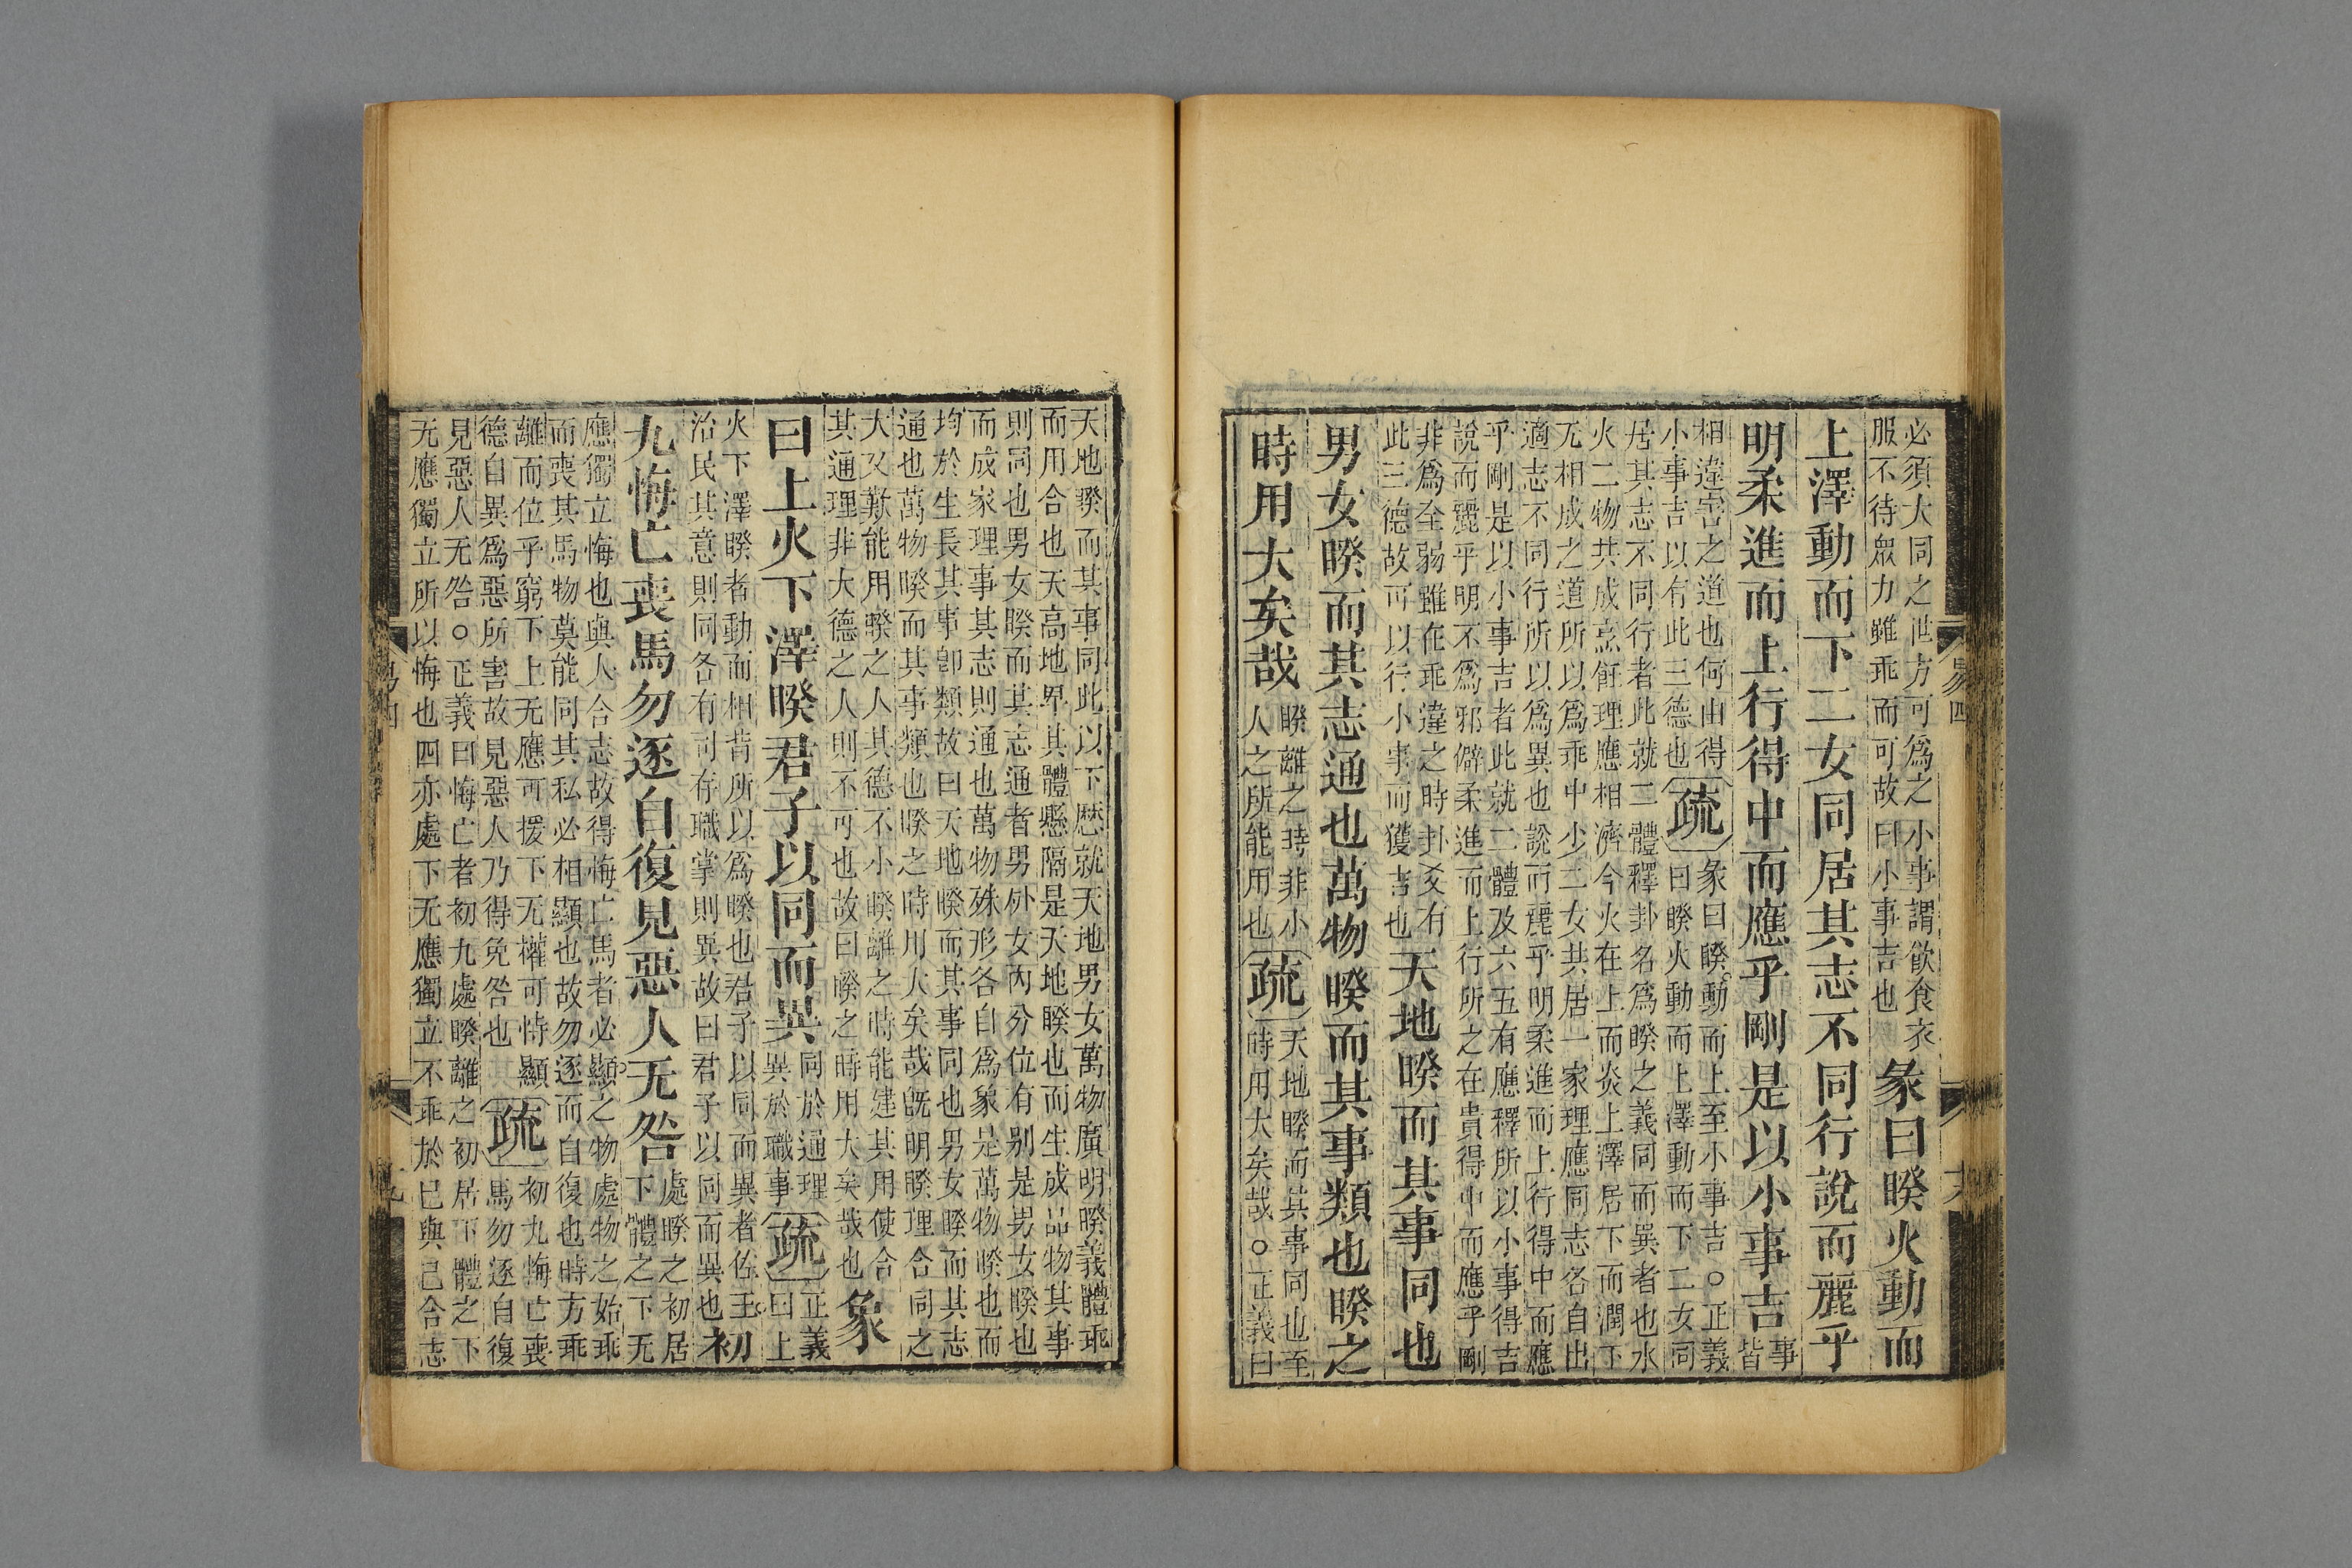 必須大同之世方可爲之小事謂飲食衣
服不待眾力雖乖而可故曰小事吉也
彖曰睽火動而
上澤動而下二女同居其志不同行說而麗乎
明柔進而上行得中而應乎剛是以小事吉
事
皆
相違害之道也何由得
小事吉以有此三德也
疏
彖曰睽動而上至小事吉○正義
曰睽火動而上澤動而下二女同
居其志不同行者此就二體釋卦名爲睽之義同而異者也水
火二物共成烹飪理應相濟今火在上而炎上澤居下而潤下
无相成之道所以爲乖中少二女共居一家理應同志各自出
適志不同行所以爲異也說而麗乎明柔進而上行得中而應
乎剛是以小事吉者此就二體及六五有應釋所以小事得吉
說而麗乎明不爲邪僻柔進而上行所之在貴得中而應乎剛
非爲全弱雖在乖違之時卦爻有
此三德故可以行小事而獲吉也
天地睽而其事同也
男女睽而其志通也萬物睽而其事類也睽之
時用大矣哉
睽離之時非小
人之所能用也
疏
天地睽而其事同也至
時用大矣哉○正義曰
易四
天地睽而其事同此以下歷就天地男女萬物廣明睽義體乖
而用合也天高地卑其體懸隔是天地睽也而生成品物其事
則同也男女睽而其志通者男外女內分位有別是男女睽也
而成家理事其志則通也萬物殊形各自爲象是萬物睽也而
均於生長其事卽類故曰天地睽而其事同也男女睽而其志
通也萬物睽而其事類也睽之時用大矣哉旣明睽理合同之
大又歎能用睽之人其德不小睽離之時能建其用使合
其通理非大德之人則不可也故曰睽之時用大矣哉也
象
曰上火下澤睽君子以同而異
同於通理
異於職事
疏
正義
曰上
火下澤睽者動而相背所以爲睽也君子以同而異者佐王
治民其意則同各有司存職掌則異故曰君子以同而異也
初
九悔亡喪馬勿逐自復見惡人无咎
處睽之初居
下體之下无
應獨立悔也與人合志故得悔亡馬者必顯之物處物之始乖
而喪其馬物莫能同其私必相顯也故勿逐而自復也時方乖
離而位乎窮下上无應可援下无權可恃顯
德自異爲惡所害故見惡人乃得免咎也
疏
初九悔亡喪
馬勿逐自復
見惡人无咎○正義曰悔亡者初九處睽離之初居下體之下
无應獨立所以悔也四亦處下无應獨立不乖於已與己合志